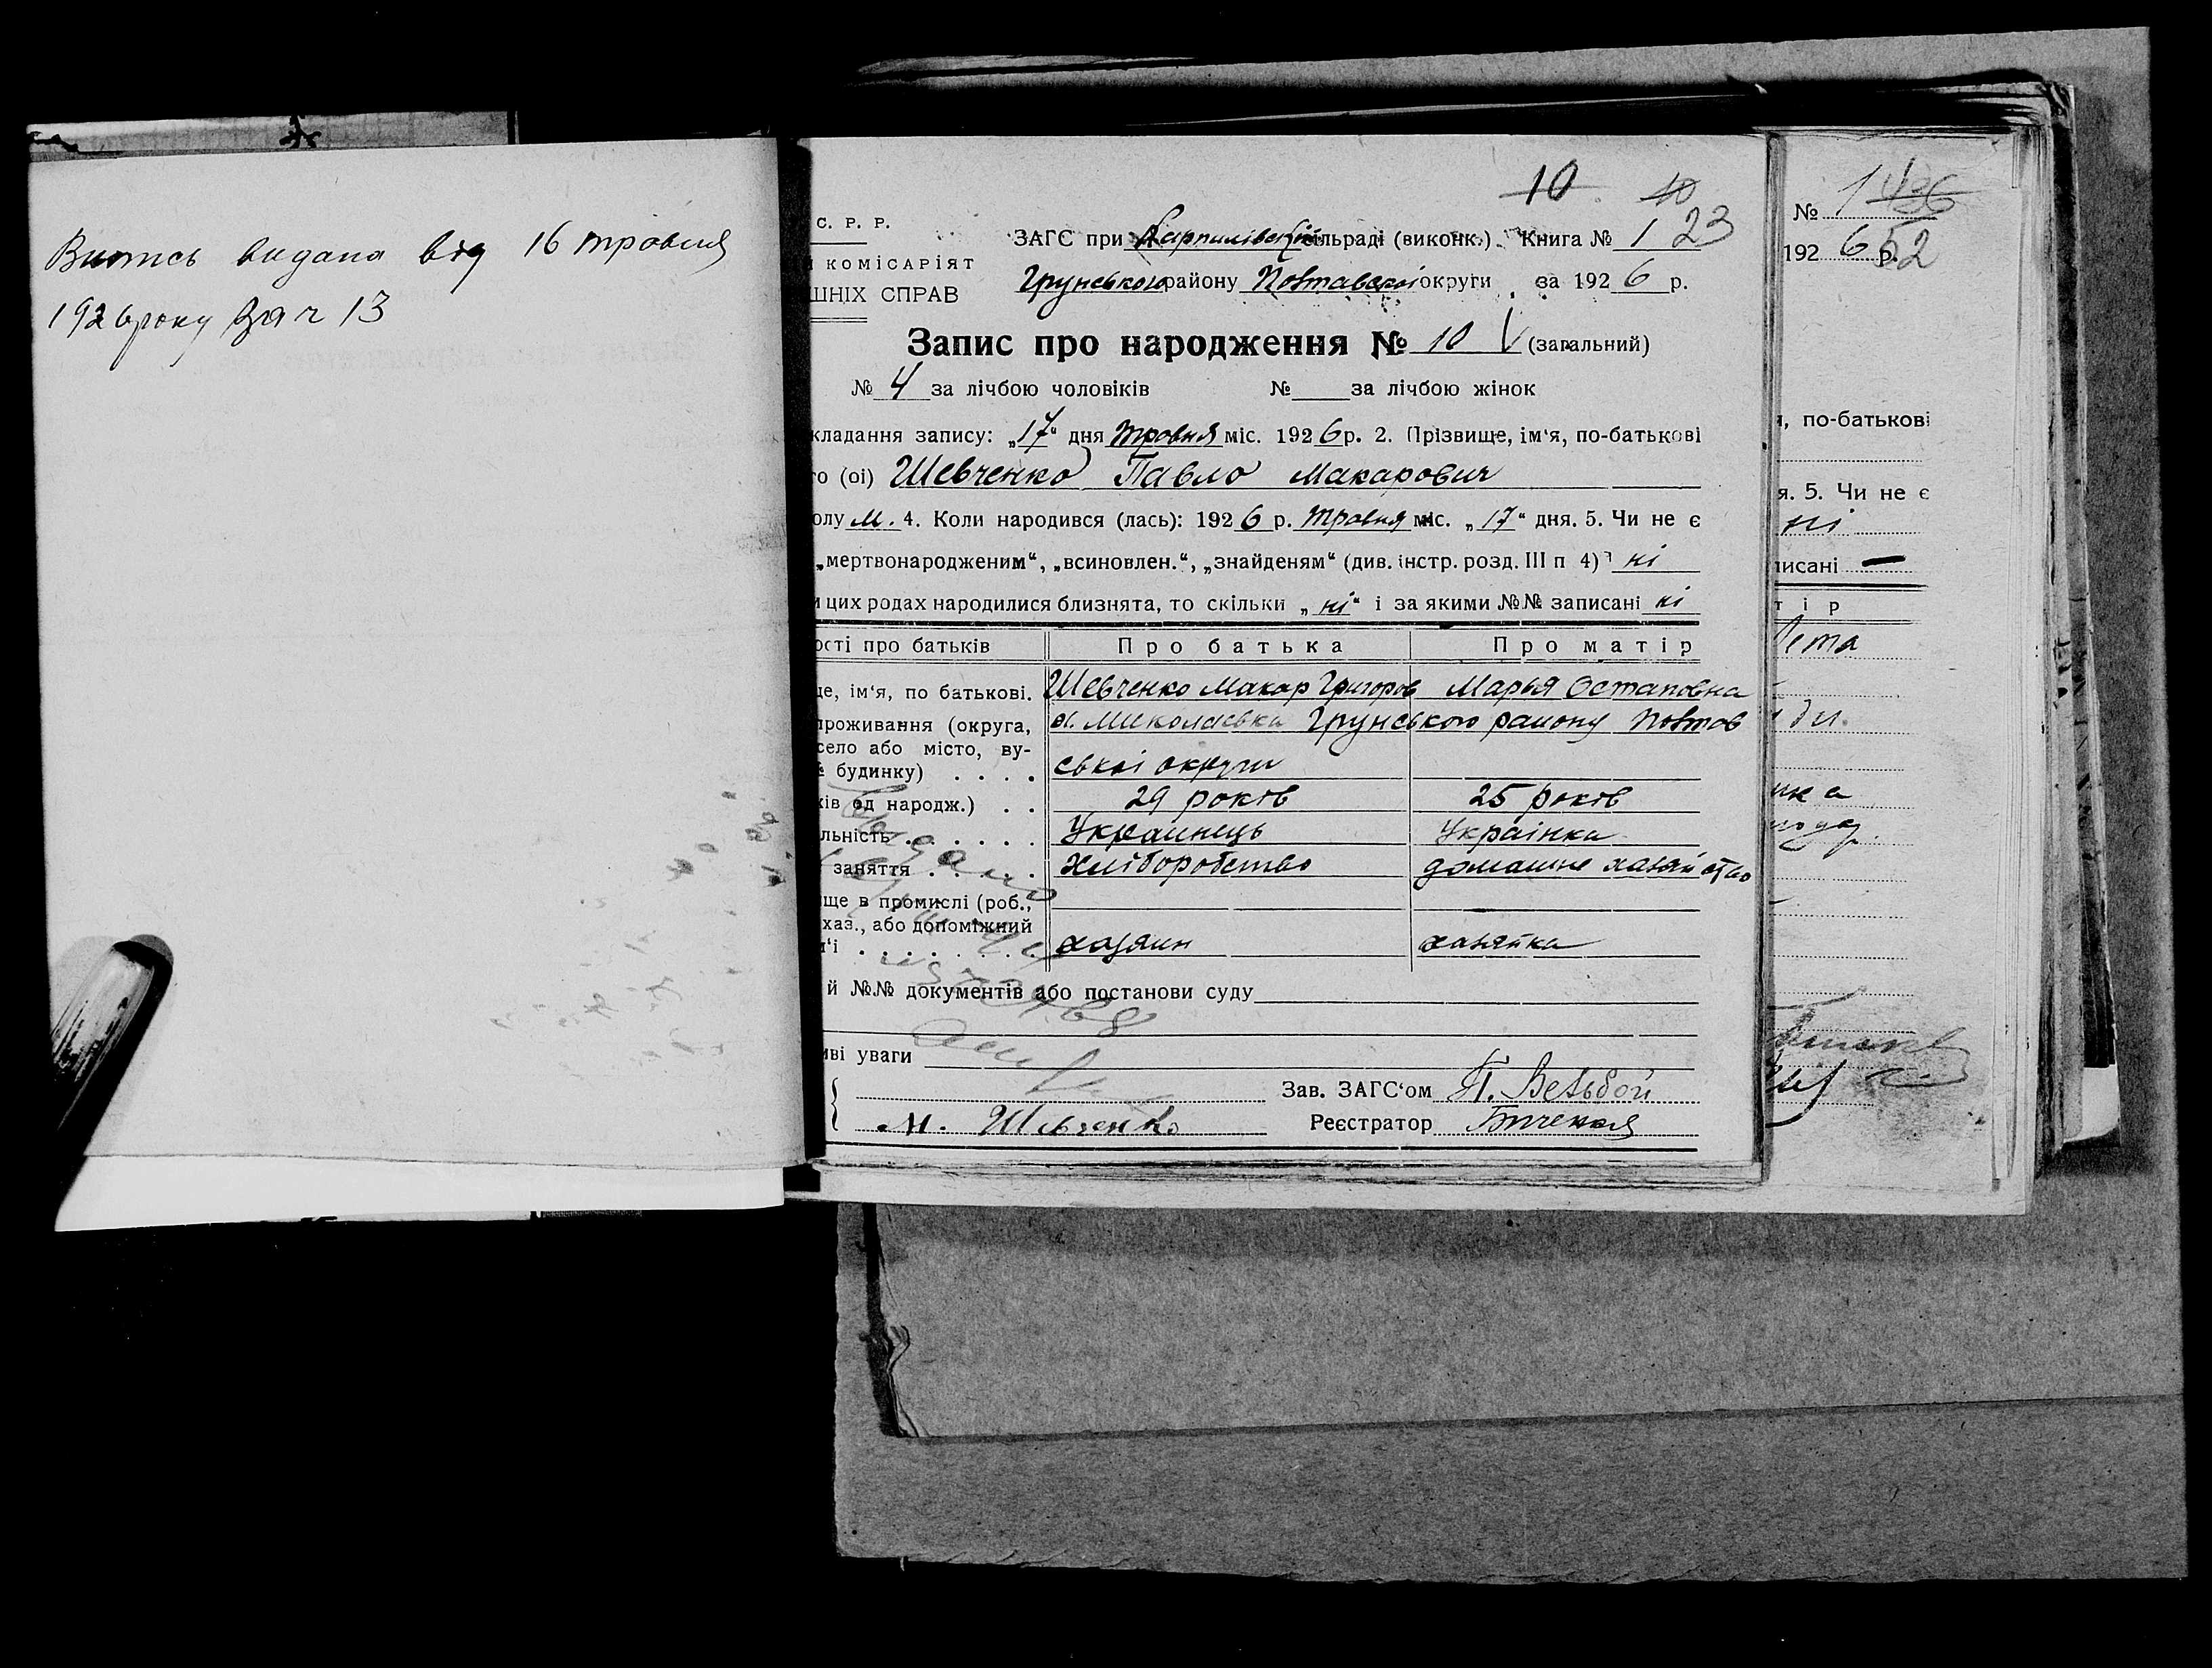 Випись видана від 16 травня
1926 року за ч 13
10 10
С. Р. Р.
ЗАГС при Карпилівській сільраді (виконк.) Книга № 1 23
КОМІСАРІЯТ
ШНІХ СПРАВ
Грунського району Полтавської округи за 1926 р.
Запис про народження № 10 V (загальний)
№ 4 за лічбою чоловіків № за лічбою жінок
кладання запису: „17" дня травня міс. 1926 р. 2. Прізвище, ім'я, по-батькові
го (ої) Шевченко Павло Макарович
олу м. 4. Коли народився (лась): 1926 р. травня міс. „17" дня. 5. Чи не є
„мертвонародженим", „всиновлен.", „знайденям" (див. інстр. розд. III п 4) ні
и цих родах народилися близнята, то скільки „ні" і за якими №№ записані ні
ості про батьків Про батька Про матір
це, ім'я, по батькові. Шевченко Макар Григоров Марья Остаповна
проживання (округа, Миколаєвка Грунського району Полтав
село або місто, ву-
№ будинку) . . . . ської округи
ків од народж.) . . 29 років 25 років
льність . . . . . . Украинець Украінка
заняття . . . . . Хліборобство домашнє хазяйство
ще в промислі (роб.,
хаз., або допоміжний
м'ї . . . . . . . . хазяин хазяйка
й №№ документів або постанови суду
иві уваги
Зав. ЗАГС'ом П.
М. Шевченко Реєстратор
№ 1 436
1926 р. 52
я, по-батькові
я. 5. Чи не є
ні
писані —
тір